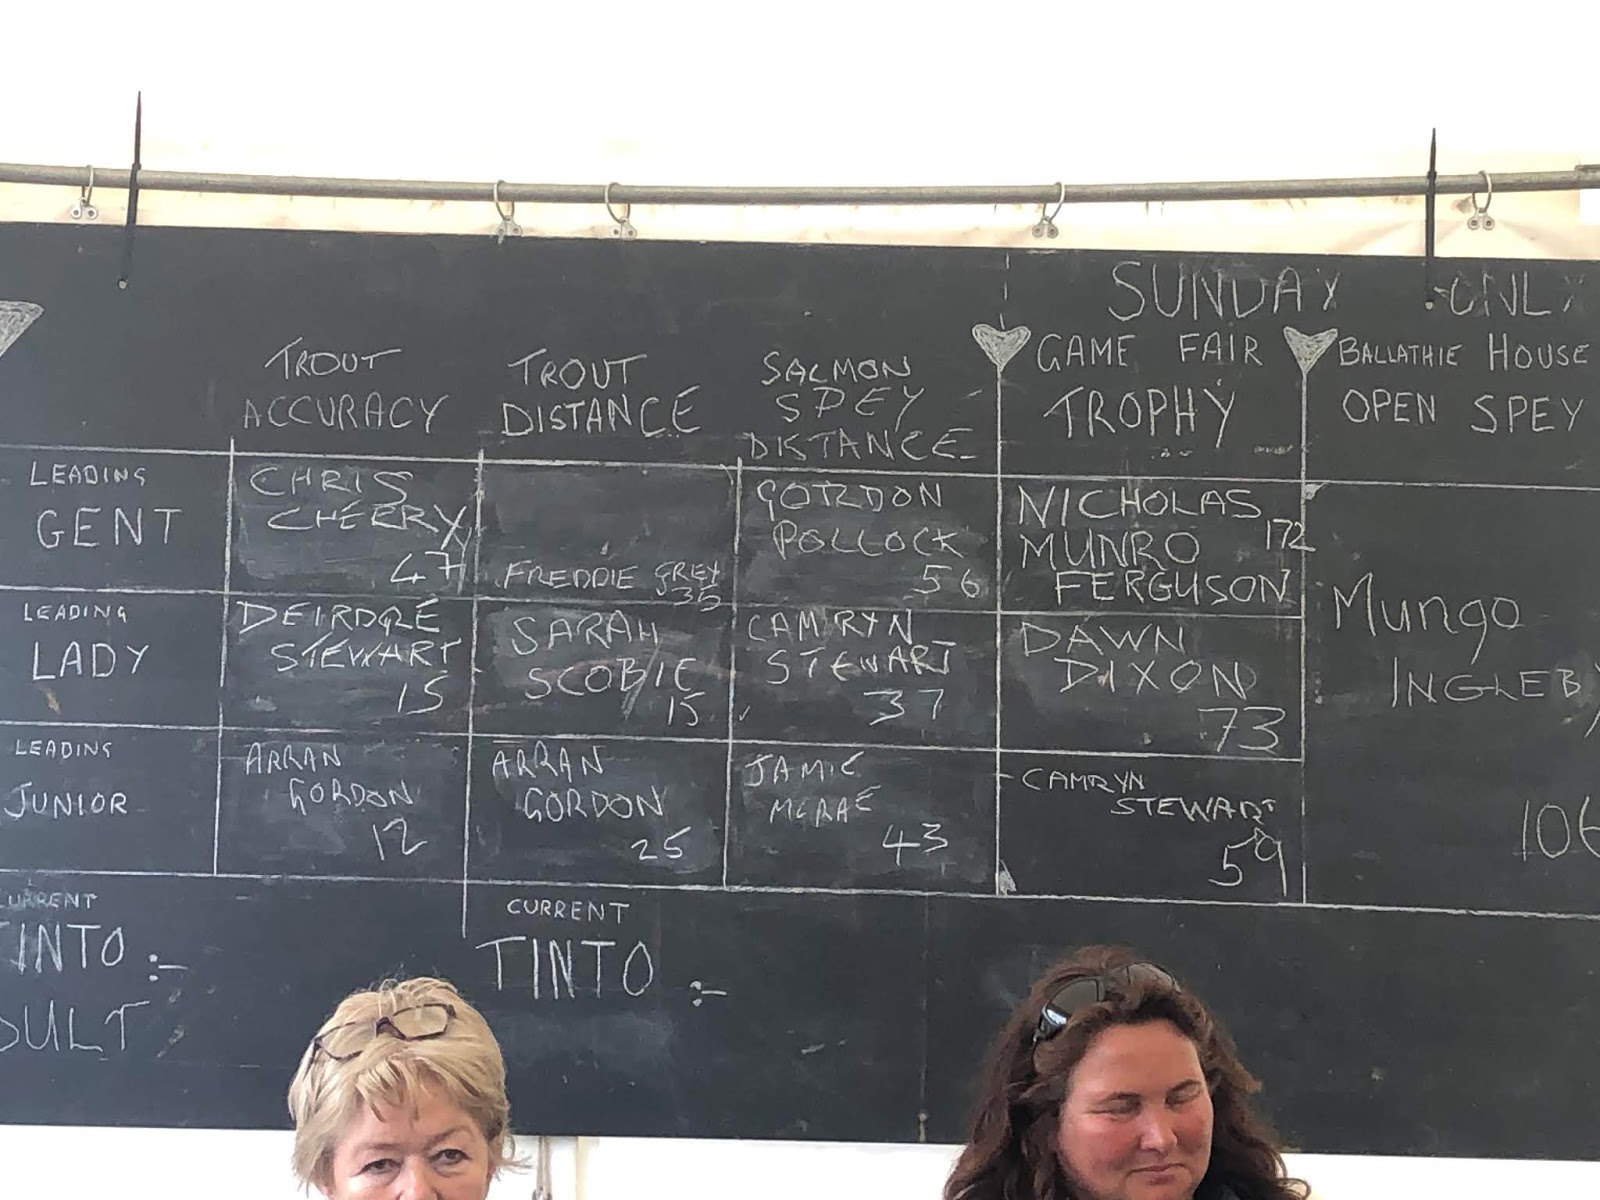 SUNDAY ONLY
TROUT
ACCURACY
TROUT
DISTANCE
SALMON
SPEY
DISTANCE
GAME FAIR
TROPHY
BALLATHIE HOUSE
OPEN SPEY
LEADING
GENT
CHRIS
CHERRY
47
FREDDIE GREY
35
GORDON
POLLOCK
56
NICHOLAS
MUNRO 172
FERGUSON
Mungo
INGLEBY
106
LEADING
LADY
DEIRDRE
STEWART
15
SARAH
SCOBIE
15
CAMRYN
STEWART
37
DAWN
DIXON
73
LEADING
JUNIOR
ARRAN
GORDON
12
ARRAN
GORDON
25
JAMIE
MCRAE
43
CAMRYN
STEWART
59
CURRENT
TINTO :-
DULT
CURRENT
TINTO :-